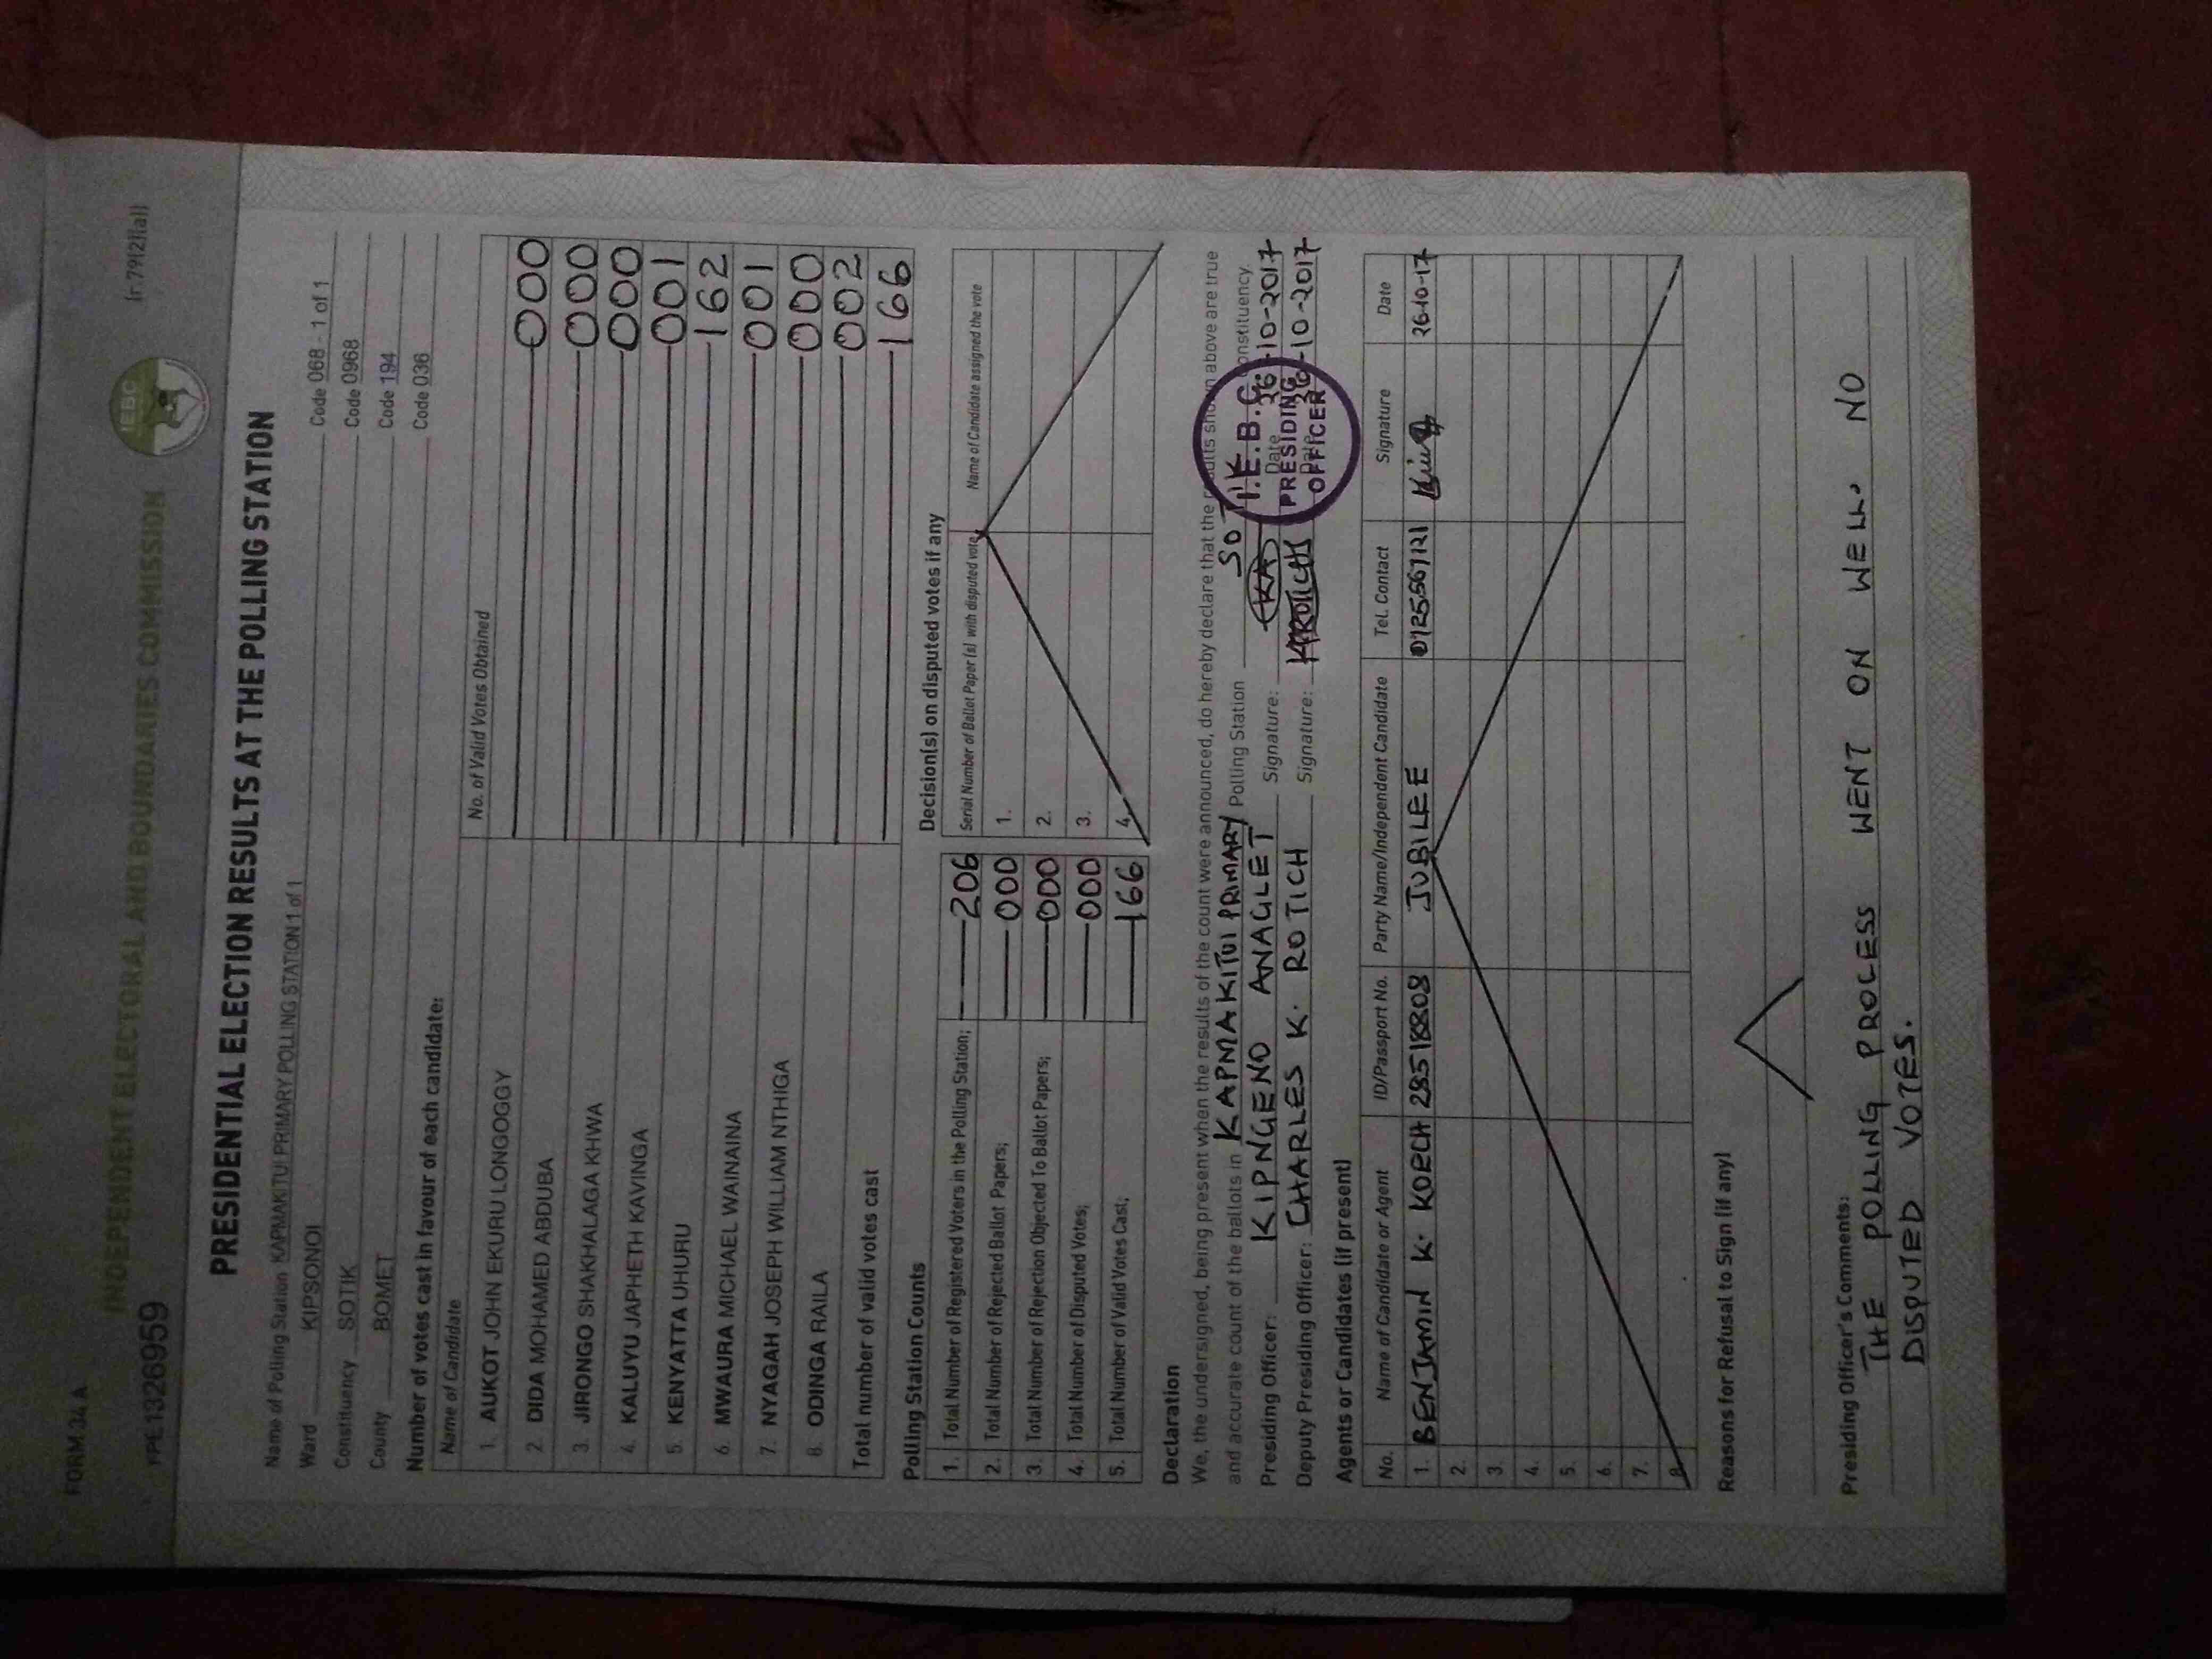 FORM 34 A
INDEPENDENT ELECTORAL AND BOUNDARIES COMMISSION
IEBC
(r.79(2)(a))
PPE1326959
PRESIDENTIAL ELECTION RESULTS AT THE POLLING STATION
Name of Polling Station KAPMAKITUI PRIMARY POLLING STATION 1 of 1 Code 068 - 1 of 1
Ward KIPSONOI Code 0968
Constituency SOTIK Code 194
County BOMET Code 036
Number of votes cast in favour of each candidate:
Name of Candidate No. of Valid Votes Obtained
1. AUKOT JOHN EKURU LONGOGGY 000
2. DIDA MOHAMED ABDUBA 000
3. JIRONGO SHAKHALAGA KHWA 000
4. KALUYU JAPHETH KAVINGA 001
5. KENYATTA UHURU 162
6. MWAURA MICHAEL WAINAINA 001
7. NYAGAH JOSEPH WILLIAM NTHIGA 000
8. ODINGA RAILA 002
Total number of valid votes cast 166
Polling Station Counts
1. Total Number of Registered Voters in the Polling Station; 206
2. Total Number of Rejected Ballot Papers; 000
3. Total Number of Rejection Objected To Ballot Papers; 000
4. Total Number of Disputed Votes; 000
5. Total Number of Valid Votes Cast; 166
Decision(s) on disputed votes if any
Serial Number of Ballot Paper (s) with disputed vote Name of Candidate assigned the vote
1.
2.
3.
4.
Declaration
We, the undersigned, being present when the results of the count were announced, do hereby declare that the results shown above are true
and accurate count of the ballots in KAPMAKITUI PRIMARY Polling Station SOTIK Constituency.
Presiding Officer: KIPNGENO ANAGLET Signature: KA Date 26-10-2017
Deputy Presiding Officer: CHARLES K. ROTICH Signature: Date 26-10-2017
I.E.B.C.
PRESIDING
OFFICER
Agents or Candidates (if present)
No. Name of Candidate or Agent ID/Passport No. Party Name/Independent Candidate Tel. Contact Signature Date
1. BENJAMIN K. KOECH 28518808 JUBILEE 0725567121 26-10-17
2.
3.
4.
5.
6.
7.
8.
Reasons for Refusal to Sign (if any)
Presiding Officer's Comments:
THE POLLING PROCESS WENT ON WELL. NO
DISPUTED VOTES.